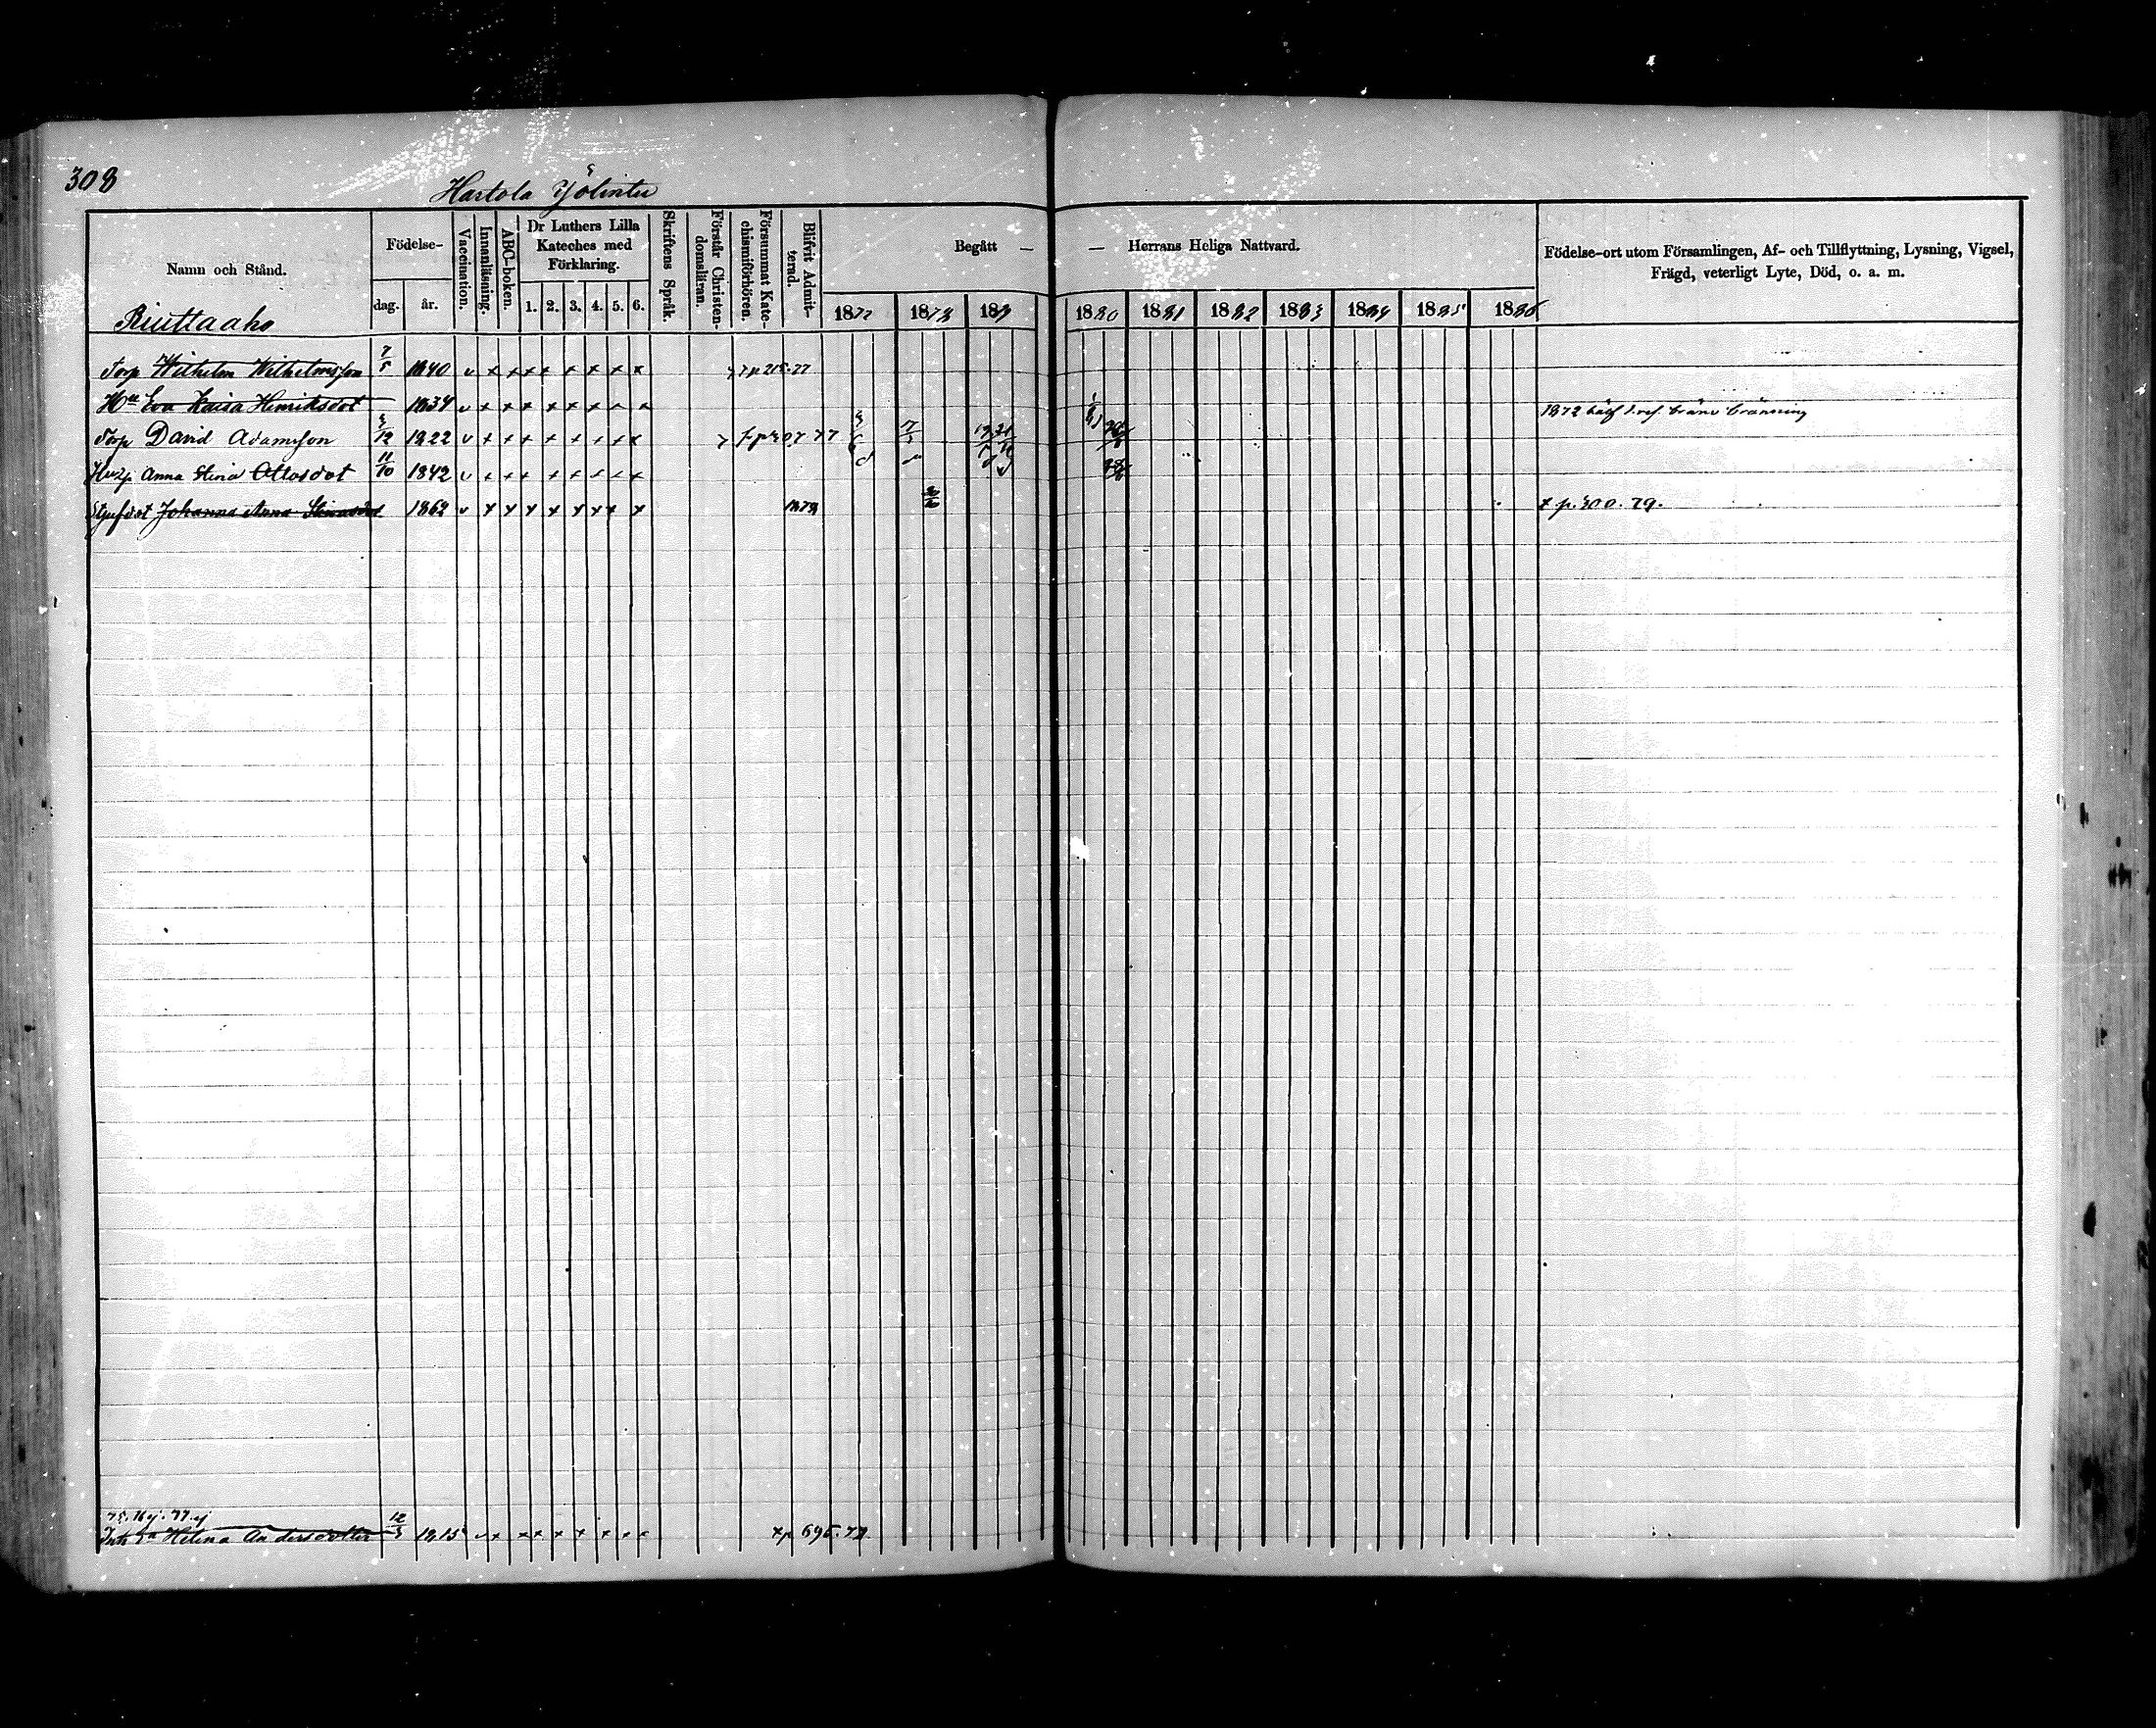 308
Hartola Yölintu
Namn och Stånd.
Födelse-
dag.
år.
Vaccination.
Innanläsning.
ABC-boken.
Dr Luthers Lilla
Kateches med
Förklaring.
1. 2. 3. 4. 5. 6.
Skriftens Språk.
Förstår Christen-
domsläran.
Försummat Kate-
chismiförhören.
Blifvit Admit-
terad.
Begått — — Herrans Heliga Nattvard.
1877 1878 1879 1880 1881 1882 1883 1884 1885 1886
Födelse-ort utom Församlingen, Af- och Tillflyttning, Lysning, Vigsel,
Frägd, veterligt Lyte, Död, o. a. m.
Riuttaaho
Torp Wilhelm Wilhelmsson 7/5 1840 v x x x x x x x x 215.77
Hu Eva Kaisa Henriksdot 1834 v x x x x x x x 1872
Torp David Adamsson 12 1822 v x x x x x x x
Anna Stina Ottosdot 11/10 1842 v x x x x x x x
Styfdot Johanna Anna 1862 v x x x x x x x x 1879 x p. 300. 79.
75. 76 ej. 77. ej
Helina Andersdotter 12/3 1815 v x x x x x x x x xp 695.79